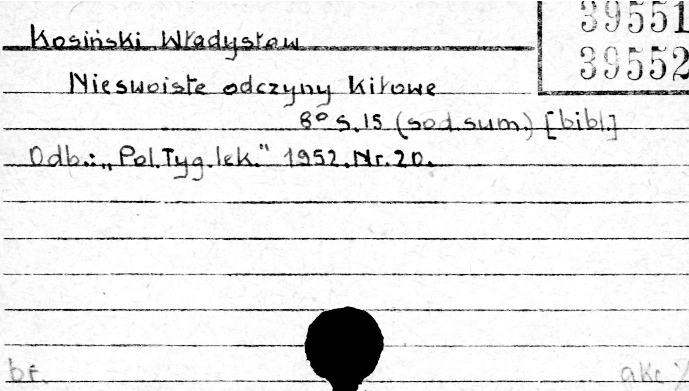 39551
39552
Kosiński Władysław
Nieswoiste odczyny kiłowe
8° s.15 (sod.sum.) [bibl.]
Odb.: „Pol.Tyg.lek." 1952.Nr.20.
bř. akc 7